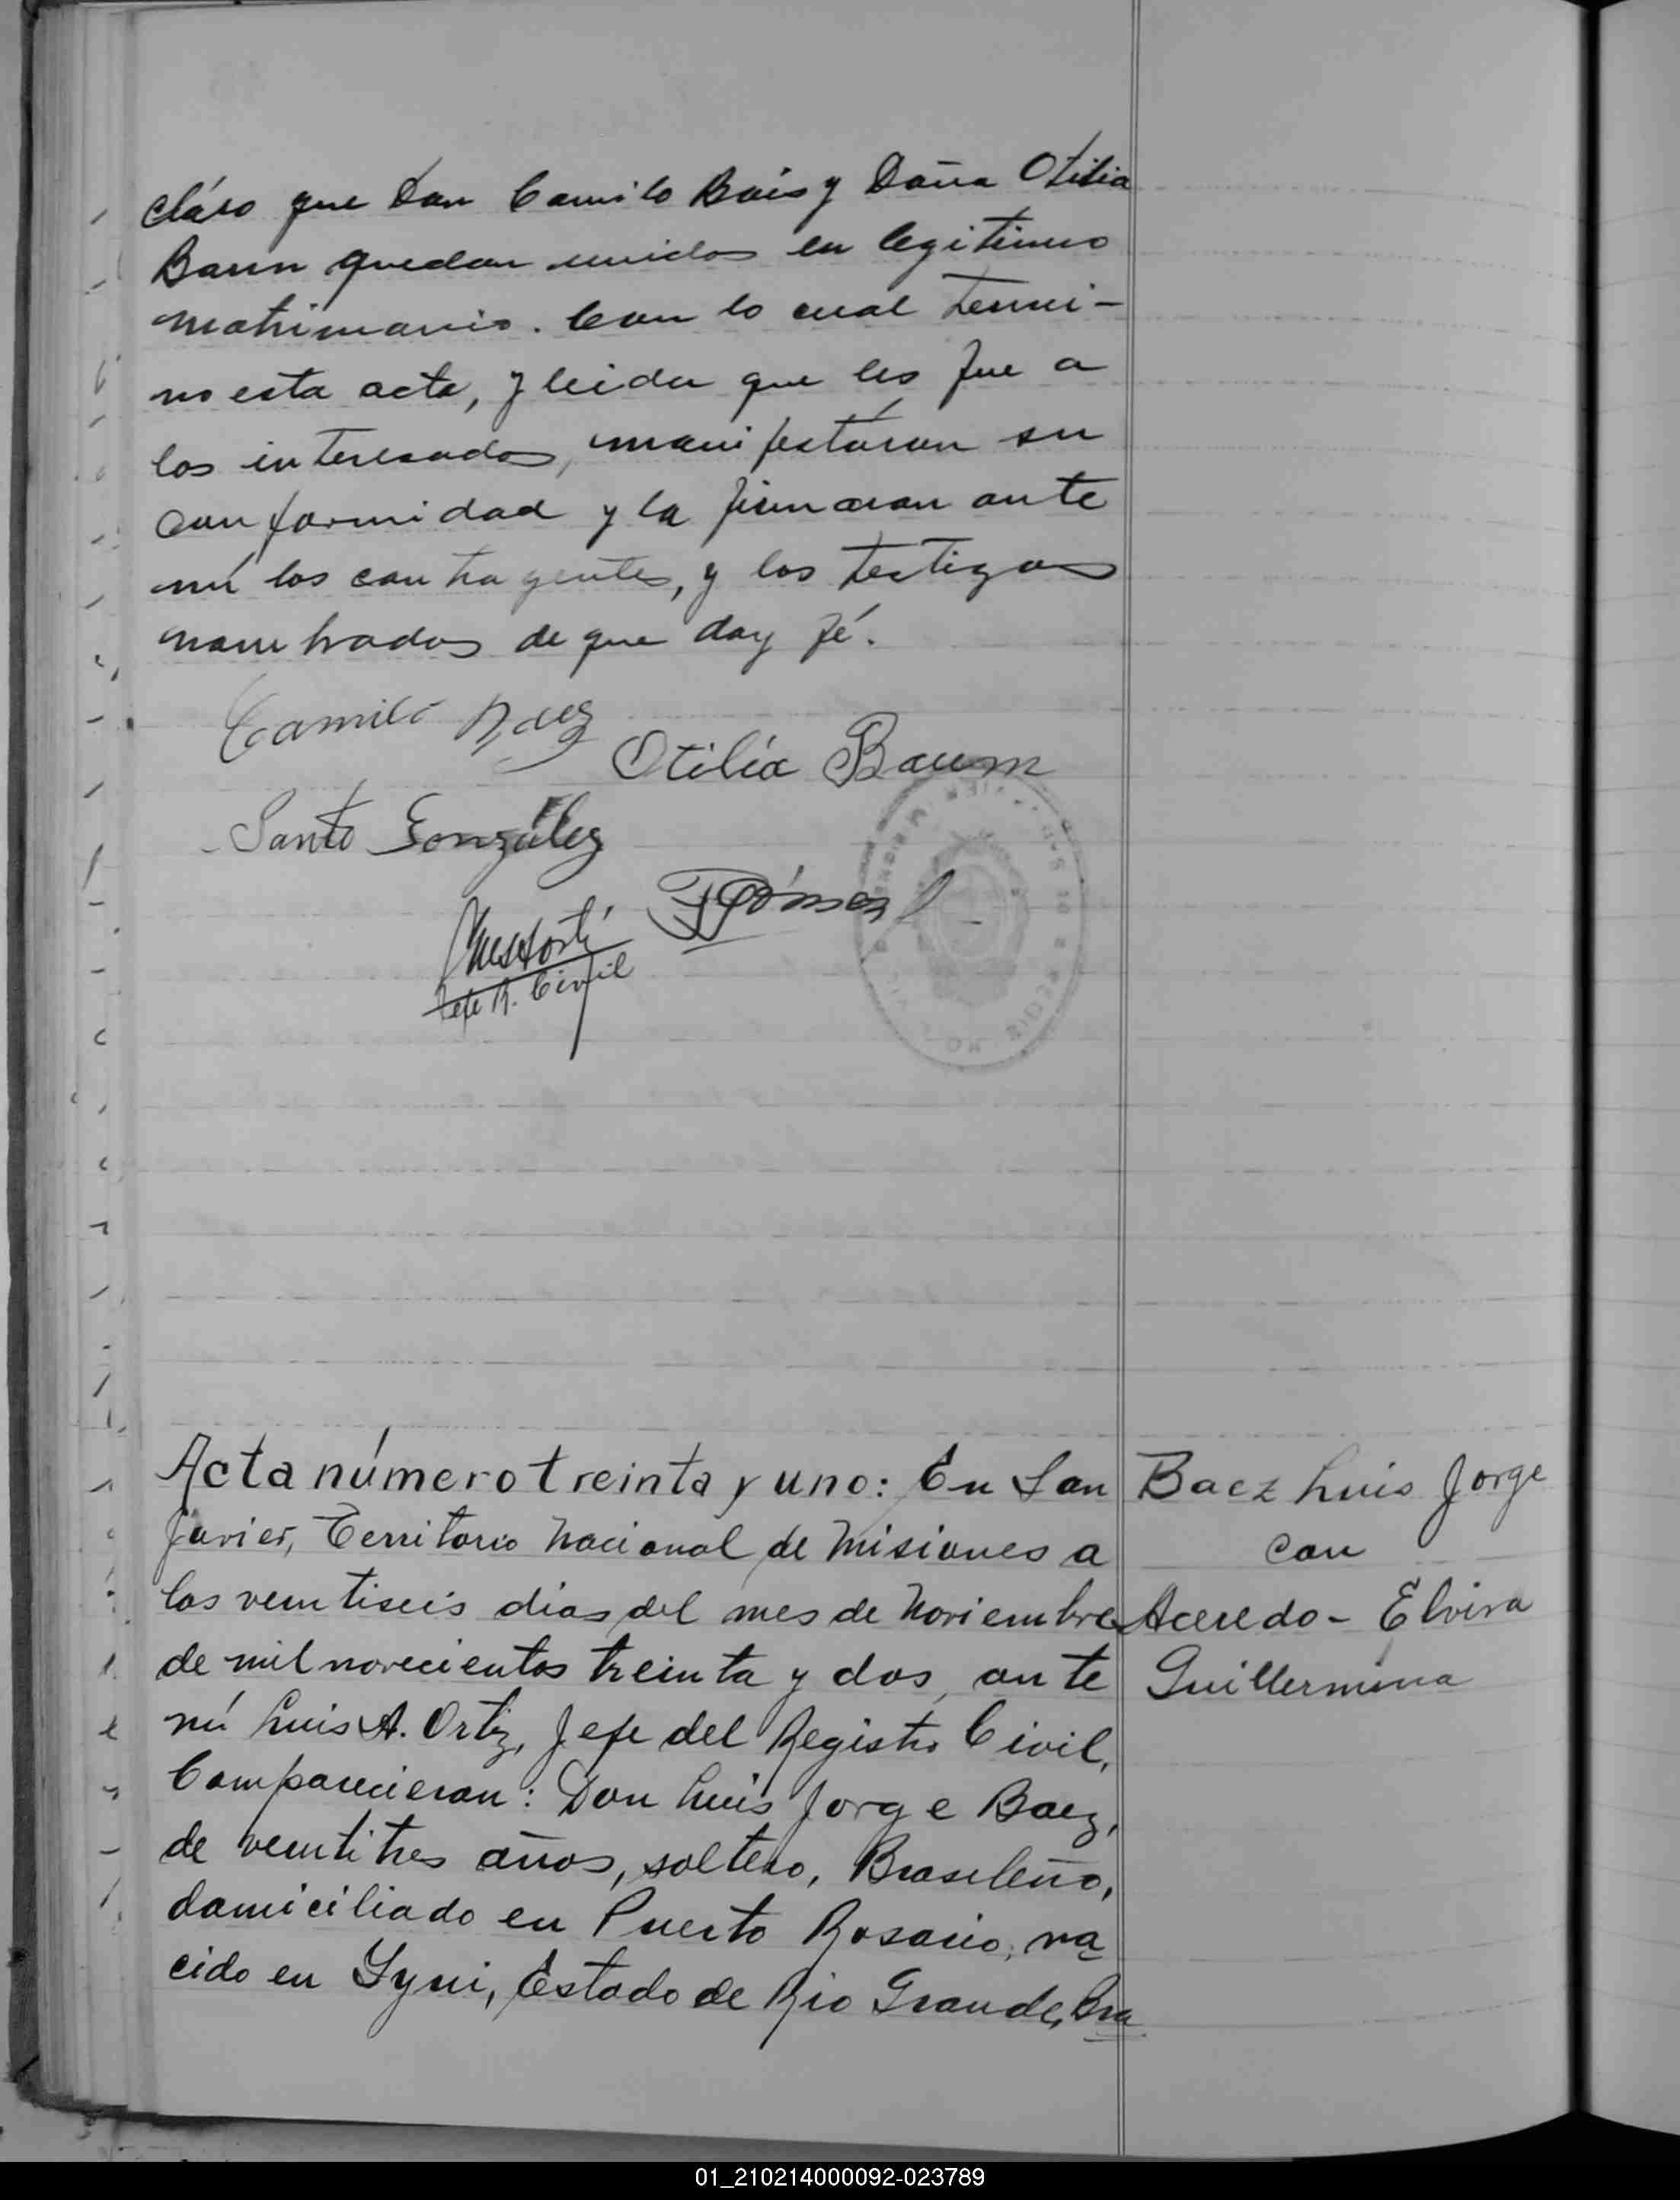 claro que Don Camilo Rais y Doña Otilia
Baum quedan unidos en legitimo
matrimonio. Con lo cual termi-
no esta acta, y leida que les fue a
los interesados, manifestáron su
conformidad y la firmaran ante
mí los contragentes, y los testigos
nombrados de que doy fé.
Camilo
Otilia Baum
Santo González
Gómez
Luis A Ortí
Jefe R. Civil
Acta número treinta y uno: En San
Javier, Territorio Nacional de Misiones a
los veintiseis dias del mes de Noviembre
de mil novecientos treinta y dos, ante
mí Luis A. Ortiz, Jefe del Registro Civil,
Comparecieron: Don Luis Jorge Baez,
de veintitres años, soltero, Brasileño,
domiciliado en Puerto Rosario, na
cido en Yyui, Estado de Rio Grande, Bra
Baez Luis Jorge
con
Acevedo - Elvira
Guillermina
01_210214000092-023789